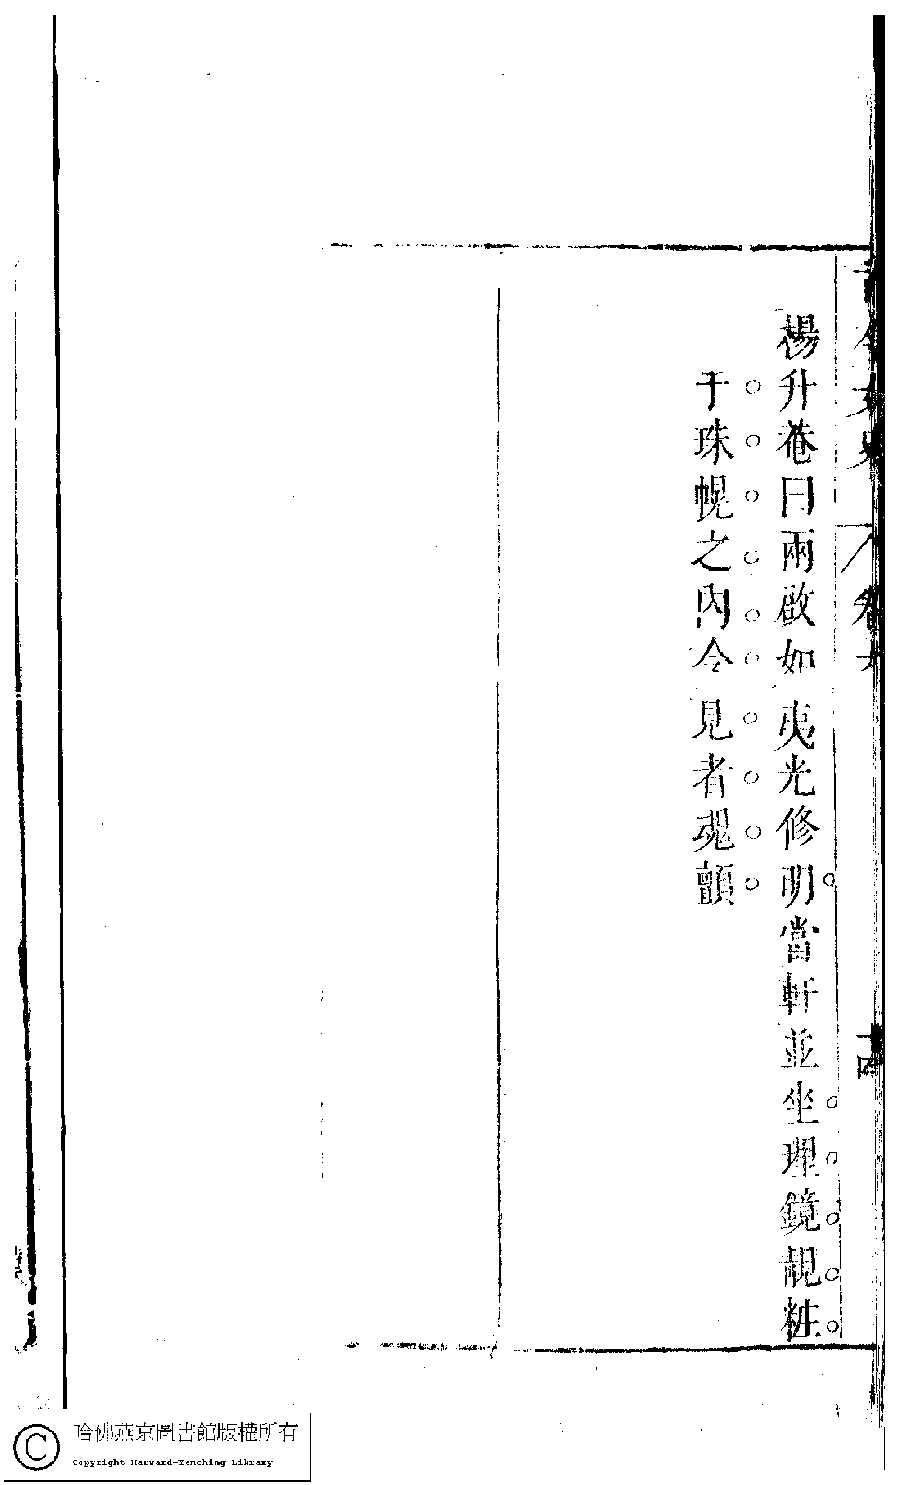 古今女史 卷六 十四
楊升菴曰兩啟如夷光修明當軒並坐理鏡靚粧
于珠幌之內令見者魂顫
哈佛燕京圖書館版權所有
Copyright Harvard-Yenching Library